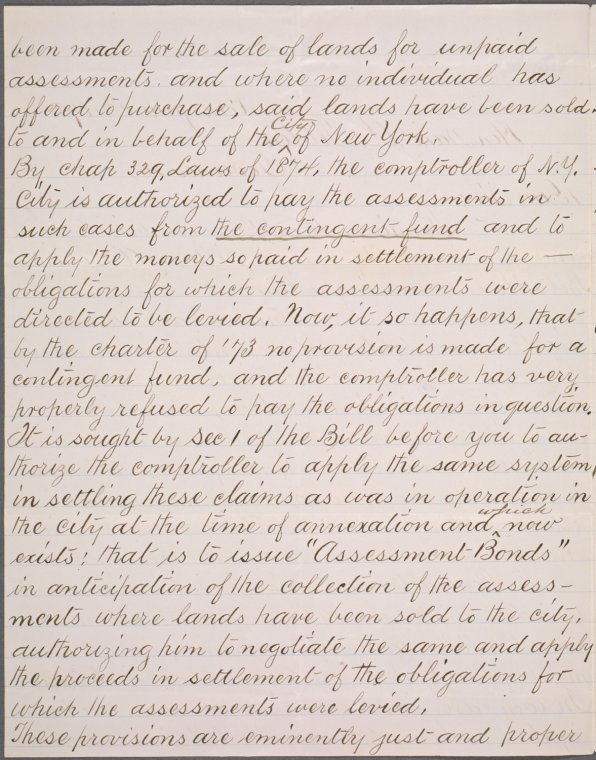 been made for the sale of lands for unpaid
assessments. and where no individual has
offered to purchase, said lands have been sold.
to and in behalf of the City of New York
By chap 329, Laws of 1874, the comptroller of N.Y.
City is authorized to pay the assessments in
such cases from the contingent fund and to
apply the moneys so paid in settlement of the —
obligations for which the assessments were
directed to be levied. Now, it so happens, that
by the charter of '73 no provision is made for a
contingent fund, and the comptroller has very
properly refused to pay the obligations in question.
It is sought by Sec 1 of the Bill before you to au-
thorize the comptroller to apply the same system
in settling these claims as was in operation in
the city at the time of annexation and which now
exists: that is to issue "Assessment Bonds"
in anticipation of the collection of the assess-
ments where lands have been sold to the city,
authorizing him to negotiate the same and apply
the proceeds in settlement of the obligations for
which the assessments were levied.
These provisions are eminently just and proper